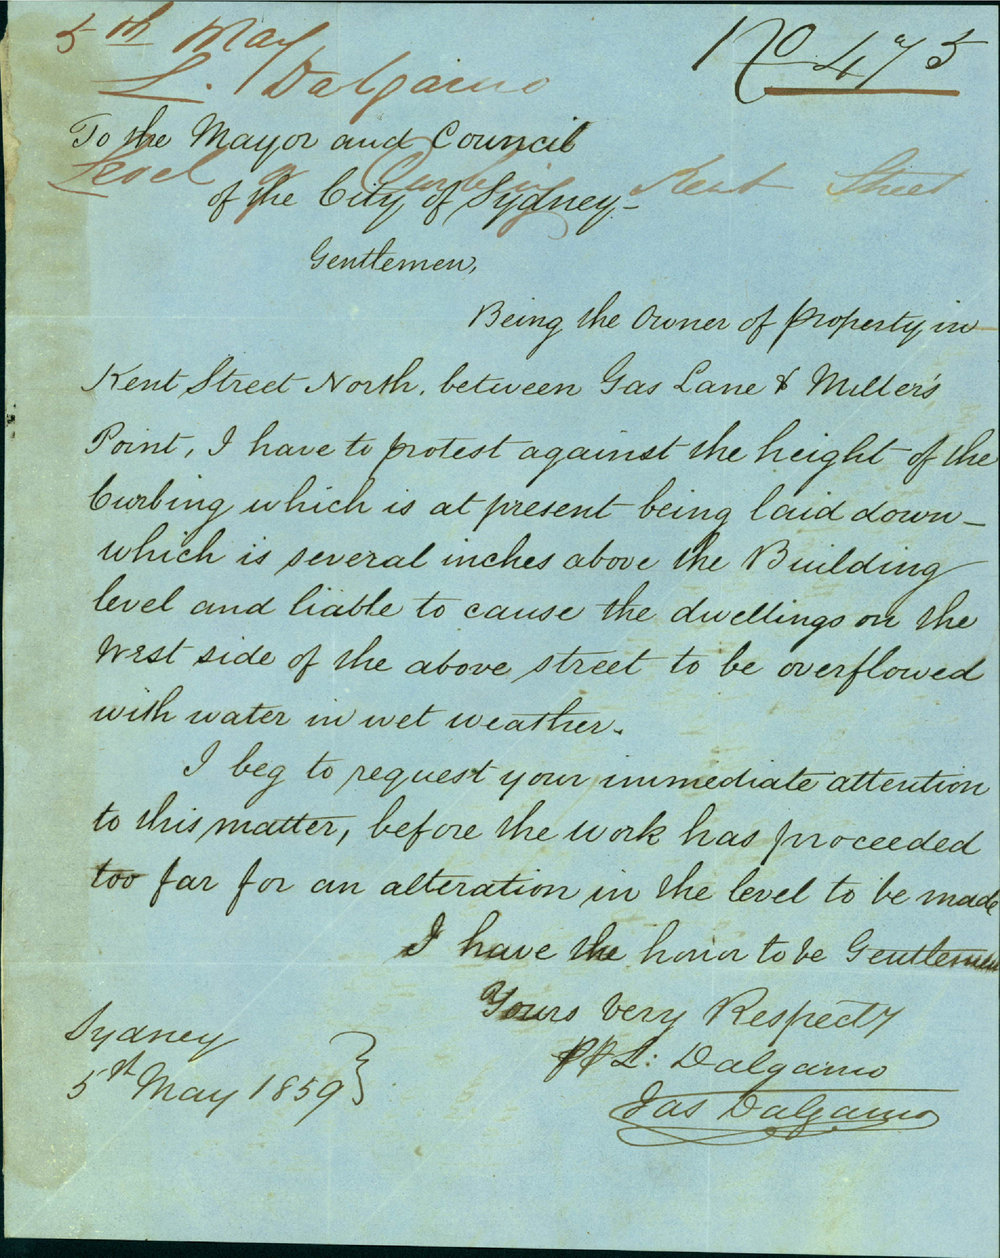 5th May
No 475
L. Dalgarno
To the Mayor and Council
Level of Curbing Kent Street
of the City of Sydney-
Gentlemen,
Being the Owner of property in
Kent Street North, between Gas Lane & Miller's
Point, I have to protest against the height of the
Curbing which is at present being laid down-
which is several inches above the Building
level and liable to cause the dwellings on the
West side of the above street to be overflowed
with water in wet weather.
I beg to request your immediate attention
to this matter, before the work has proceeded
too far for an alteration in the level to be made
I have the honor to be Gentlemen
Yours Very Respecty
pp L: Dalgarno
Jas Dalgarno
Sydney
5th May 1859